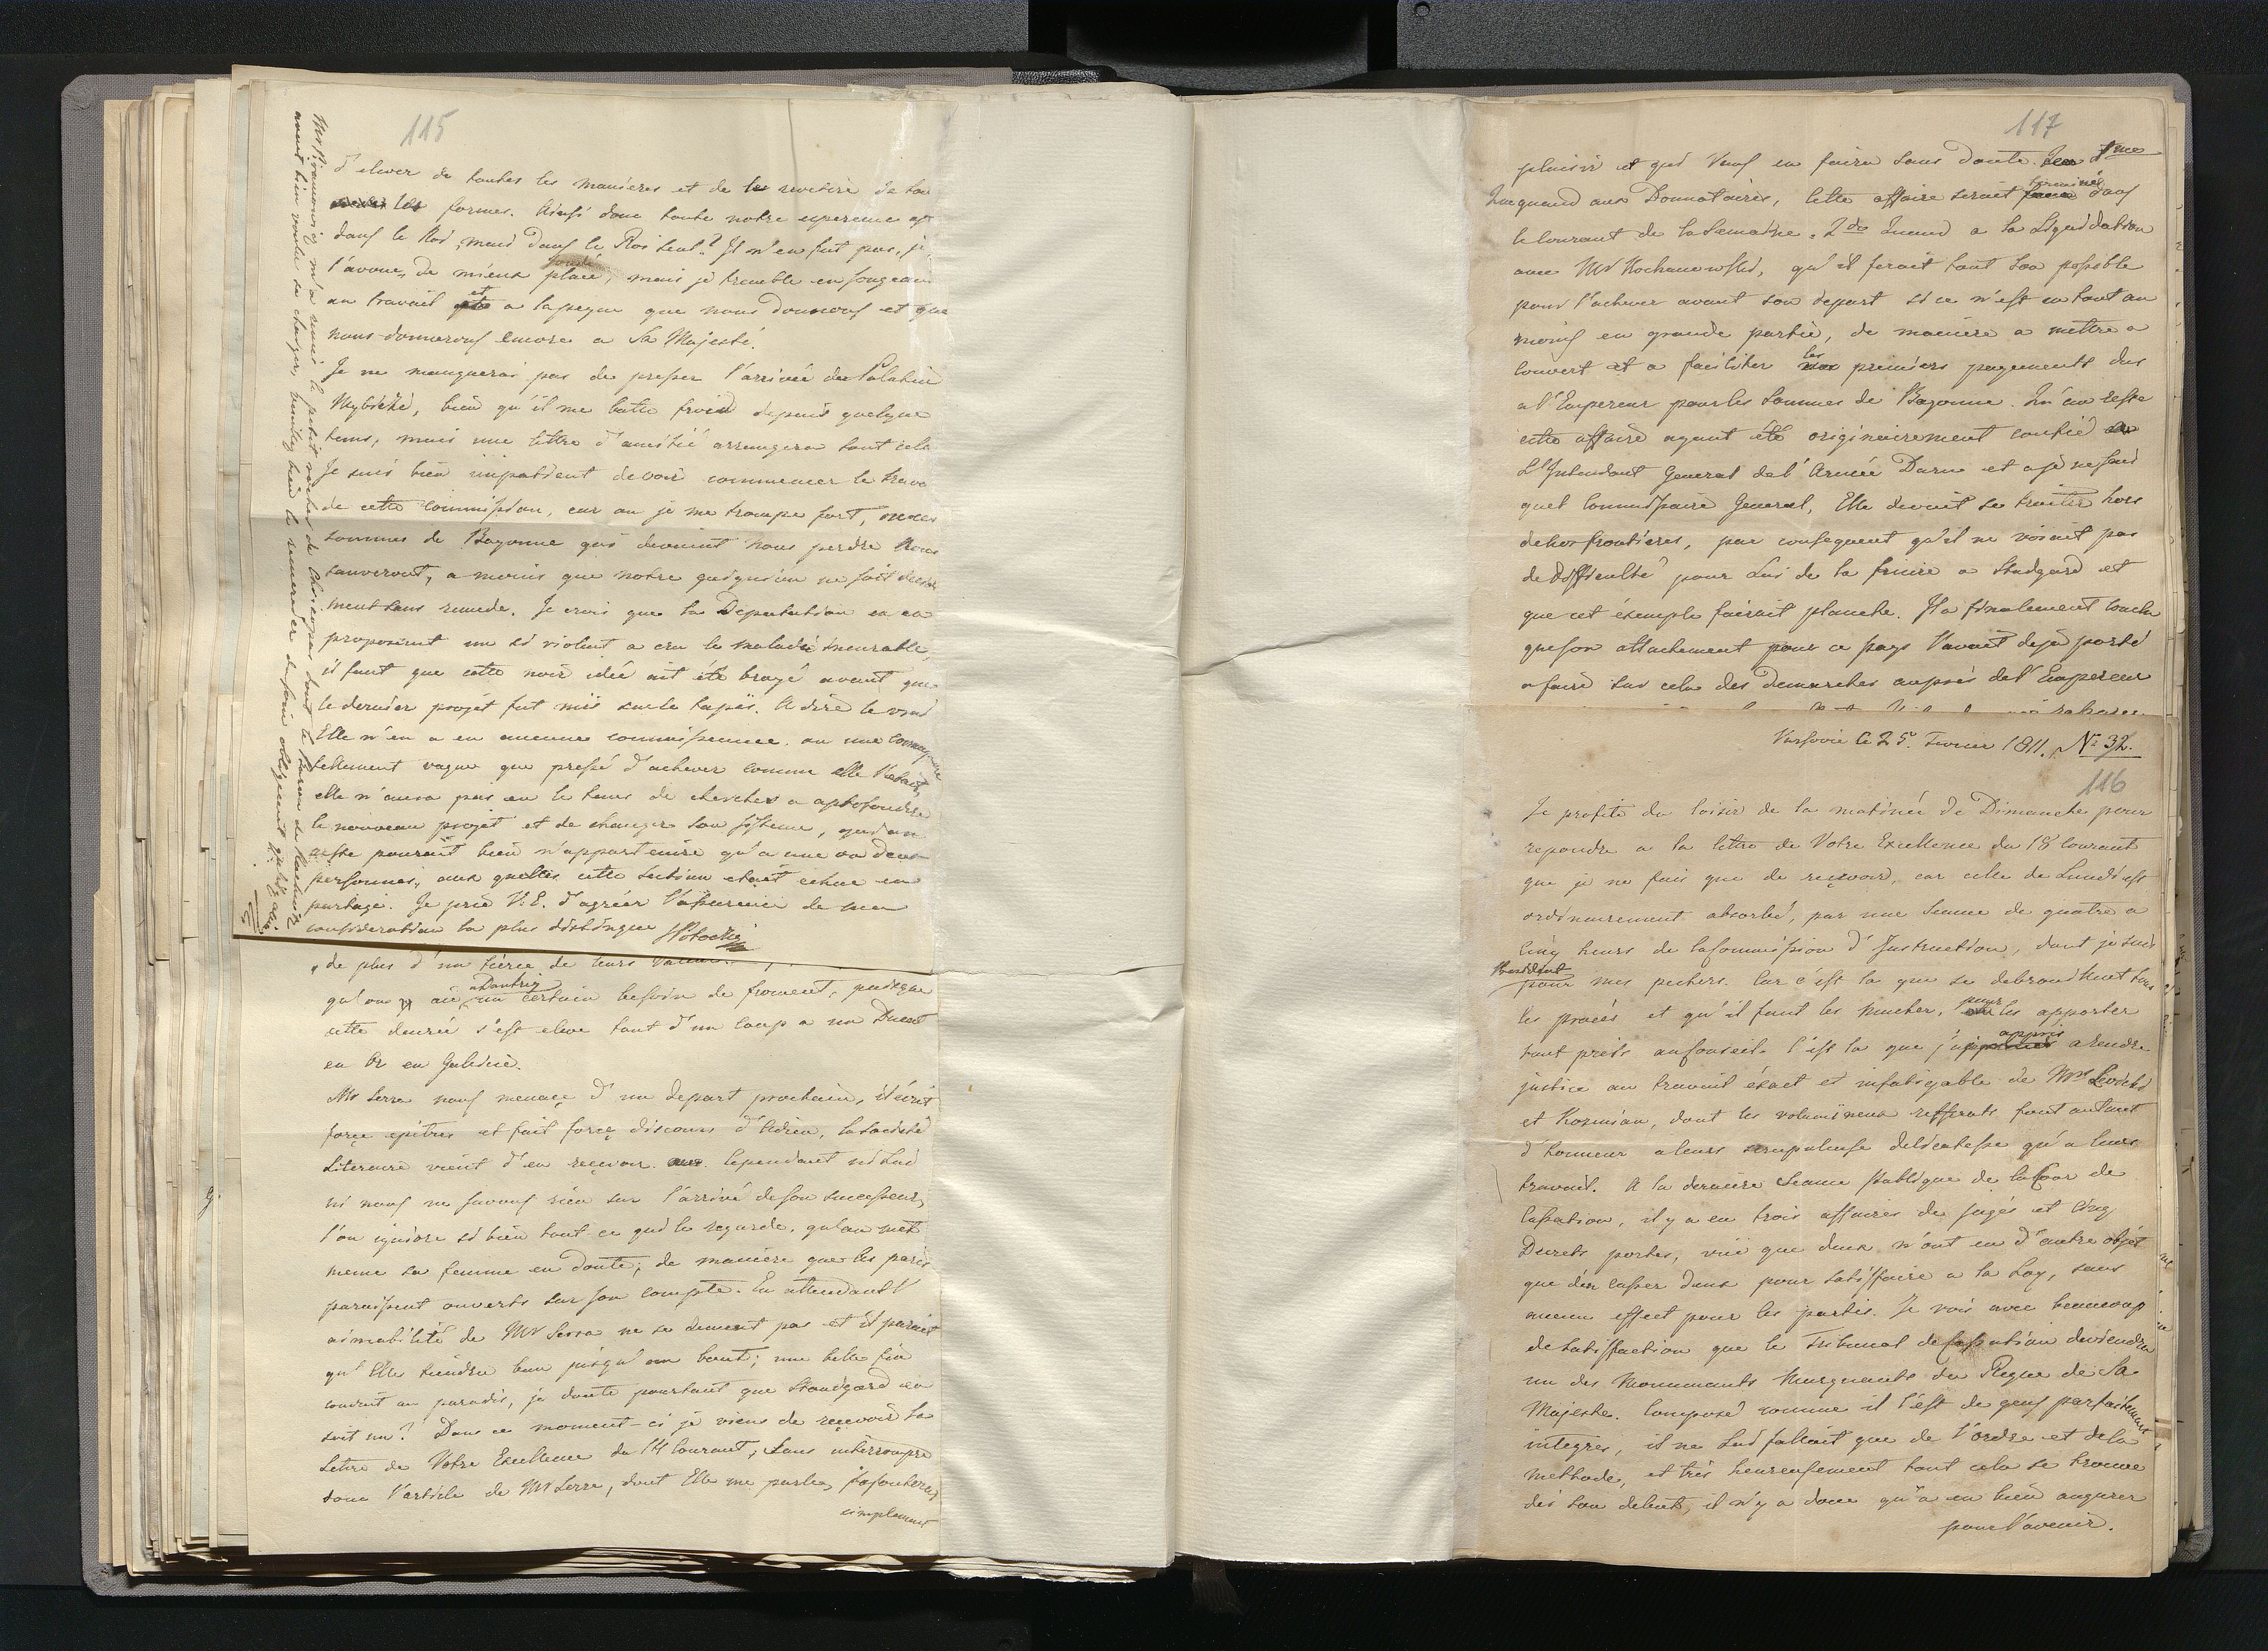 115
d'elever de toutes les manieres et de le revetire de tou
les formes. Ainsi donc toute notre esperence est
dans le Roi, mais dans le Roi seul? Il n'en fut pas, je
l'avoue, de mieux placé, fondé mais je tremble en songeant
au travail et a la peyne que nous donnons et que
nous donnerons encore a Sa Majesté.
Je ne manquerai pas de presser l'arrivée du Palatin
Wybicki, bien qu'il me batte froid depuis quelque
tems, mais une lettre d'amitié arrangera tout cela
Je suis bien impatient de voir commencer le trava
de cette commission, car ou je me trompe fort, ou les
sommes de Bayonne qui devaient nous perdre nous
sauveront, a moins que notre guignon ne soit
ment sans remede. Je crois que la Deputation en en
proposant un si violent a cru la maladie incurable,
il faut que cette noir idée ait été broyé avant que
le dernier projet fut mis sur le tapis. A dire le vrai
Elle n'en a eu aucune connaissance, ou une
tellement vague que pressé d'achever comme elle l'etait,
elle n'aura pas eu le tems de chercher a aprofondir
le nouveau projet et de changer son sisteme, qui au
reste pourait bien n'appartenire qu'a une ou deux
personnes, aux quelles cette section etait echue en
partage. Je prie V. E. d'agréer l'assurence de ma
consideration la plus distingue SPotocki
Mr m'a remis le petit rocher de dont le Baron de
avait bien voulu se charger, veuillez bien le remercier du soin obligeant qu'il
de plus d'un tierce de leurs
qu'on y aie a Dantzig un certain besoin de froment, puisque
cette denrée s'est elevé tout d'un coup a un Ducat
en Or en Galicie.
Mr Serra nous menaçe d'un depart prochain, il écrit
force epitres et fait force discours d'Adieu, la Societé
Literaire vient d'en reçevoir. Cependant ni Lui
ni nous ne savons rien sur l'arrivé de son successeur,
l'on ignore si bien tout ce qui le regarde, qu'on met
meme sa femme en doute; de manière que les paris
paraissent ouverts sur son compte. En attendant l'
aimabilité de Mr Serra ne se dement pas et il parait
qu'Elle tiendra bon jusqu'au bout; une belle fin
conduit au paradis, je doute pourtant que Stoudgard en
soit un? Dans ce moment-ci je viens de reçevoir la
Lettre de Votre Excellence du 14 Courant, sans interrompre
donc l'article de Mr Serra, dont Elle me parle, j'ajouterai
simplement
117
plaisir et qui Vous en faira sans doute. 1mo
Que quand aux Donnotaires, cette affaire serait terminée dans
le Courant de la Semaine. 2do Quand a la Liquidation
avec Mr Kochanowski, qu'il ferait tout son possible
pour l'achever avant son depart si ce n'est en tout au
moins en grande partie, de manière a mettre a
couvert et a faciliter les premiers payements dus
a l'Empereur pour les Sommes de Bayonne. Qu'au reste
cette affaire ayant été originairement confié a
L'Intendant General de l'Armée Daru et a je ne sais
quel Commissaire General, Elle devait se traiter hors
de nos frontieres, par consequent qu'il ne voiait pas
de difficulté pour Lui de la finire a Studgard et
que cet éxemple fairait planche. Il a finalement conclu
que son attachement pour ce pays l'avait deja porté
a faire sur cela des demarches auprès de l'Empereur
Varsovie le 25. Fevrier 1811. No 32.
116
Je profite du loisir de la matinée de Dimanche pour
repondre a la lettre de Votre Excellence du 18 Courant
que je ne fais que de reçevoir, car celle de Lundi est
ordinairement absorbée, par une Seance de quatre a
Cinq heurs de la Commission d'Instruction, dont je suis
President pour mes pechers. Car c'est la que se debrouillent tous
les procès et qu'il faut les macher, pour les apporter
tout prets au Conseil. C'est la que j'ai appris a rendre
justice au travail éxact et infatigable de Mrs
et Kozmian, dont les volumineux refferats font autant
d'honneur a leurs scrupuleuse delicatesse qu'a leurs
travail. A la derniere Seance Publique de la Cour de
Cassation, il y a eu trois affaires de jugés et Cinq
Decrets portés, vüe que deux n'ont eu d'autre objet
que d'en casser deux pour satisffaire a la Loy, sans
aucun effect pour les partis. Je vois avec beaucoup
de satisffaction que le Tribunal de Cassation deviendra
un des Monuments Marquants du Regne de Sa
Majesté. Composé comme il l'est de gens parfaitement
integres, il ne Lui fallait que de l'ordre et de la
methode, et très heureusement tout cela se trouve
dès son debut, il n'y a donc qu'a en bien augurer
pour l'avenir.